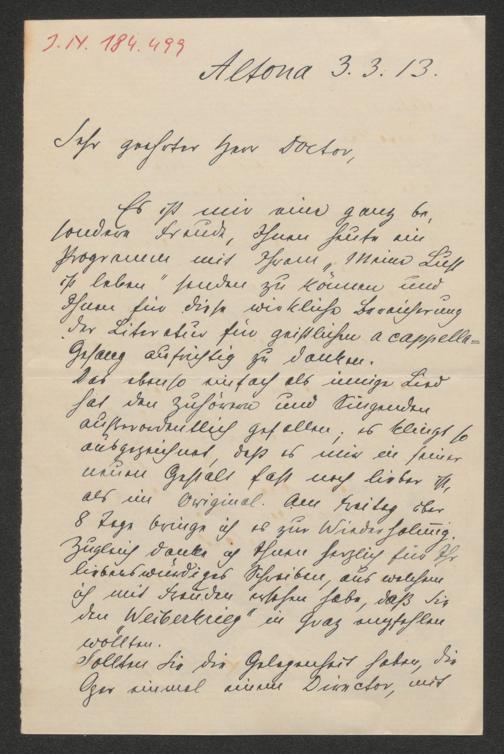 J.N. 184.499
Altona 3.3.13.
Sehr geehrter Herr Doctor,
Es ist mir eine ganz be-
sondere Freude, Ihnen heute ein
Programm mit Ihrem „Meine Lust
ist leben" senden zu können und
Ihnen für diese wirkliche Bereicherung
der Literatur für geistlichen a cappella-
Gesang aufrichtig zu danken.
Das ebenso einfach als innige Lied
hat den Zuhörern und Singenden
außerordentlich gefallen; es klingt so
ausgezeichnet, daß es mir in seiner
neuen Gestalt fast noch lieber ist,
als im Original. Am Freitag über
8 Tage bringe ich es zur Wiederholung.
Zugleich danke ich Ihnen herzlich für Ihr
liebenswürdiges Schreiben, aus welchem
ich mit Freuden ersehen habe, daß Sie
den „Weiberkrieg" in Graz empfehlen
wollten.
Sollten Sie die Gelegenheit haben, die
Oper einmal einem Director, mit